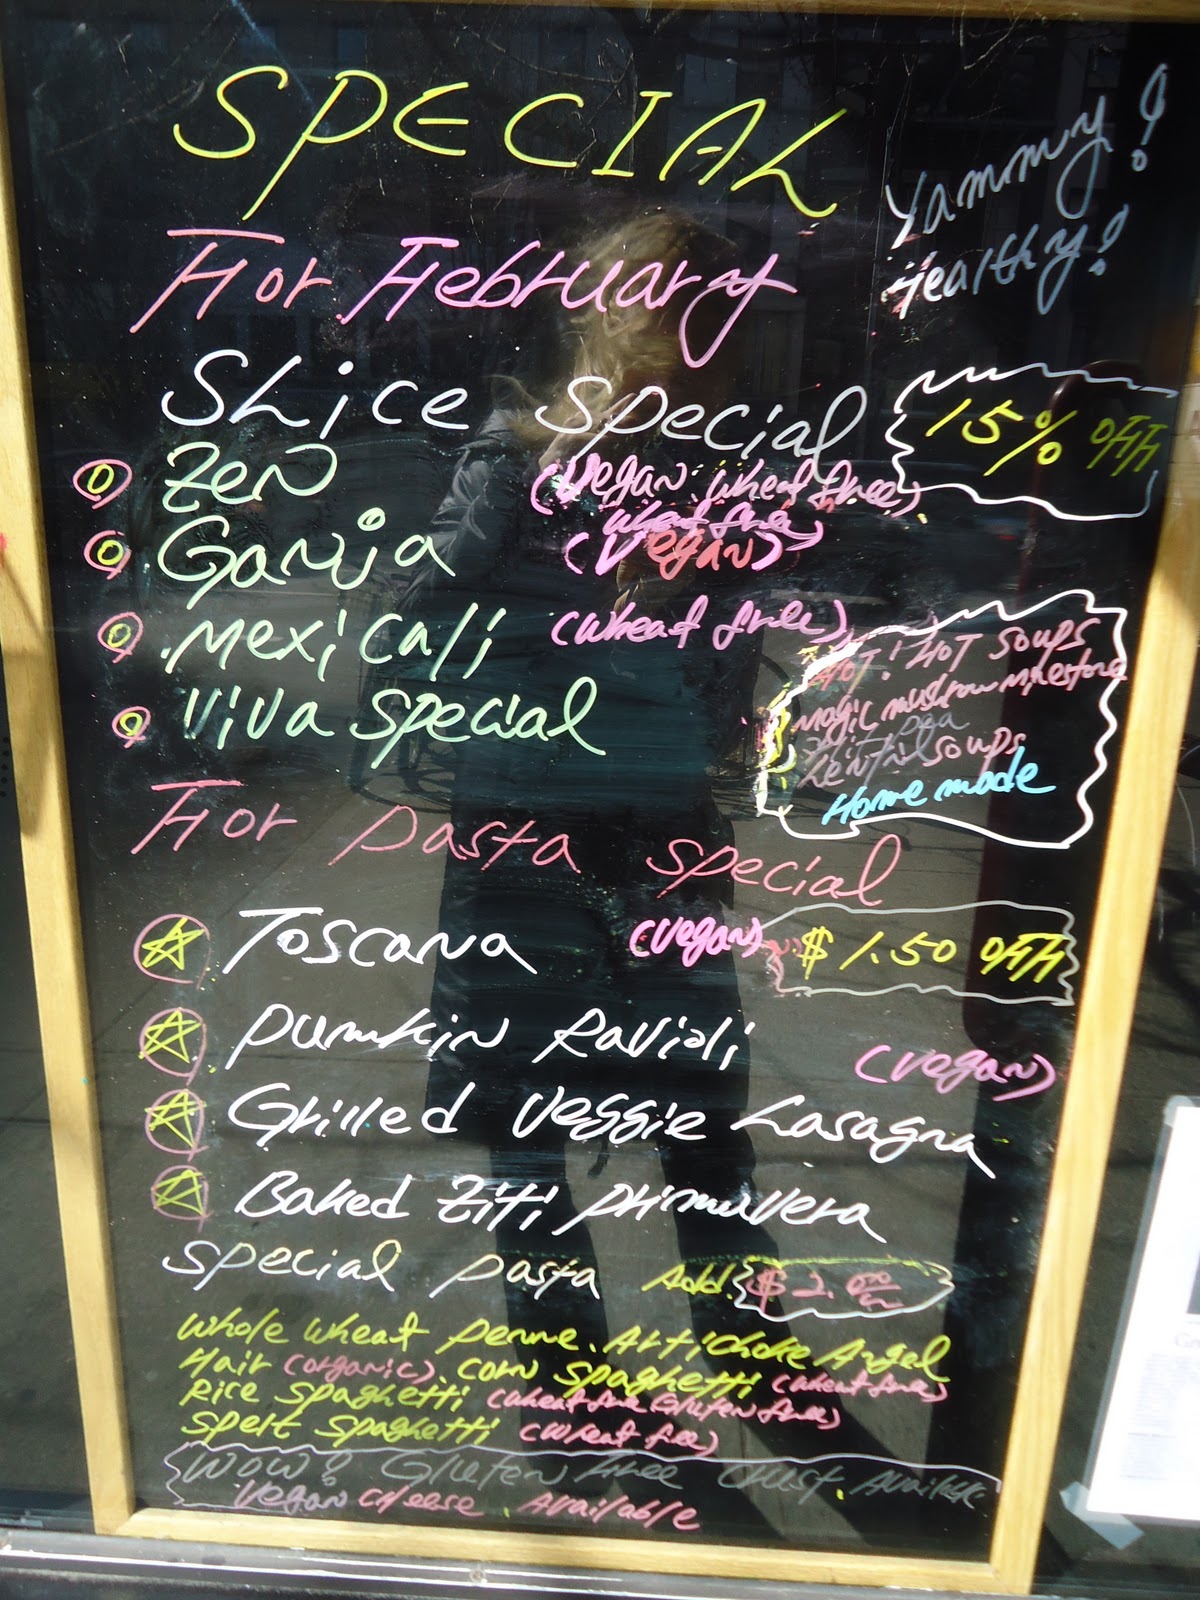 SPECIAL
Yammy!
Healthy!
For February
Slice Special
15% OFF
Zen (Vegan. Wheat free)
Ganja (Vegan) wheat free
Mexicali (Wheat free)
Viva Special
HOT! HOT SOUPS
magic mushrow minestone
split pea
Lentil soups
Home made
For pasta special
Toscana (vegan) $1.50 OFF
Pumkin Ravioli (vegan)
Grilled Veggie Lasagna
Baked Ziti primuvera
Special pasta Add. $2.00
Whole Wheat penne. Artichoke Angel
Hair (organic). Corn Spaghetti (wheat free)
Rice Spaghetti (Wheat free Gluten free)
Spelt Spaghetti (Wheat free)
WOW! Gluten free Crust. Available
Vegan Cheese. Available